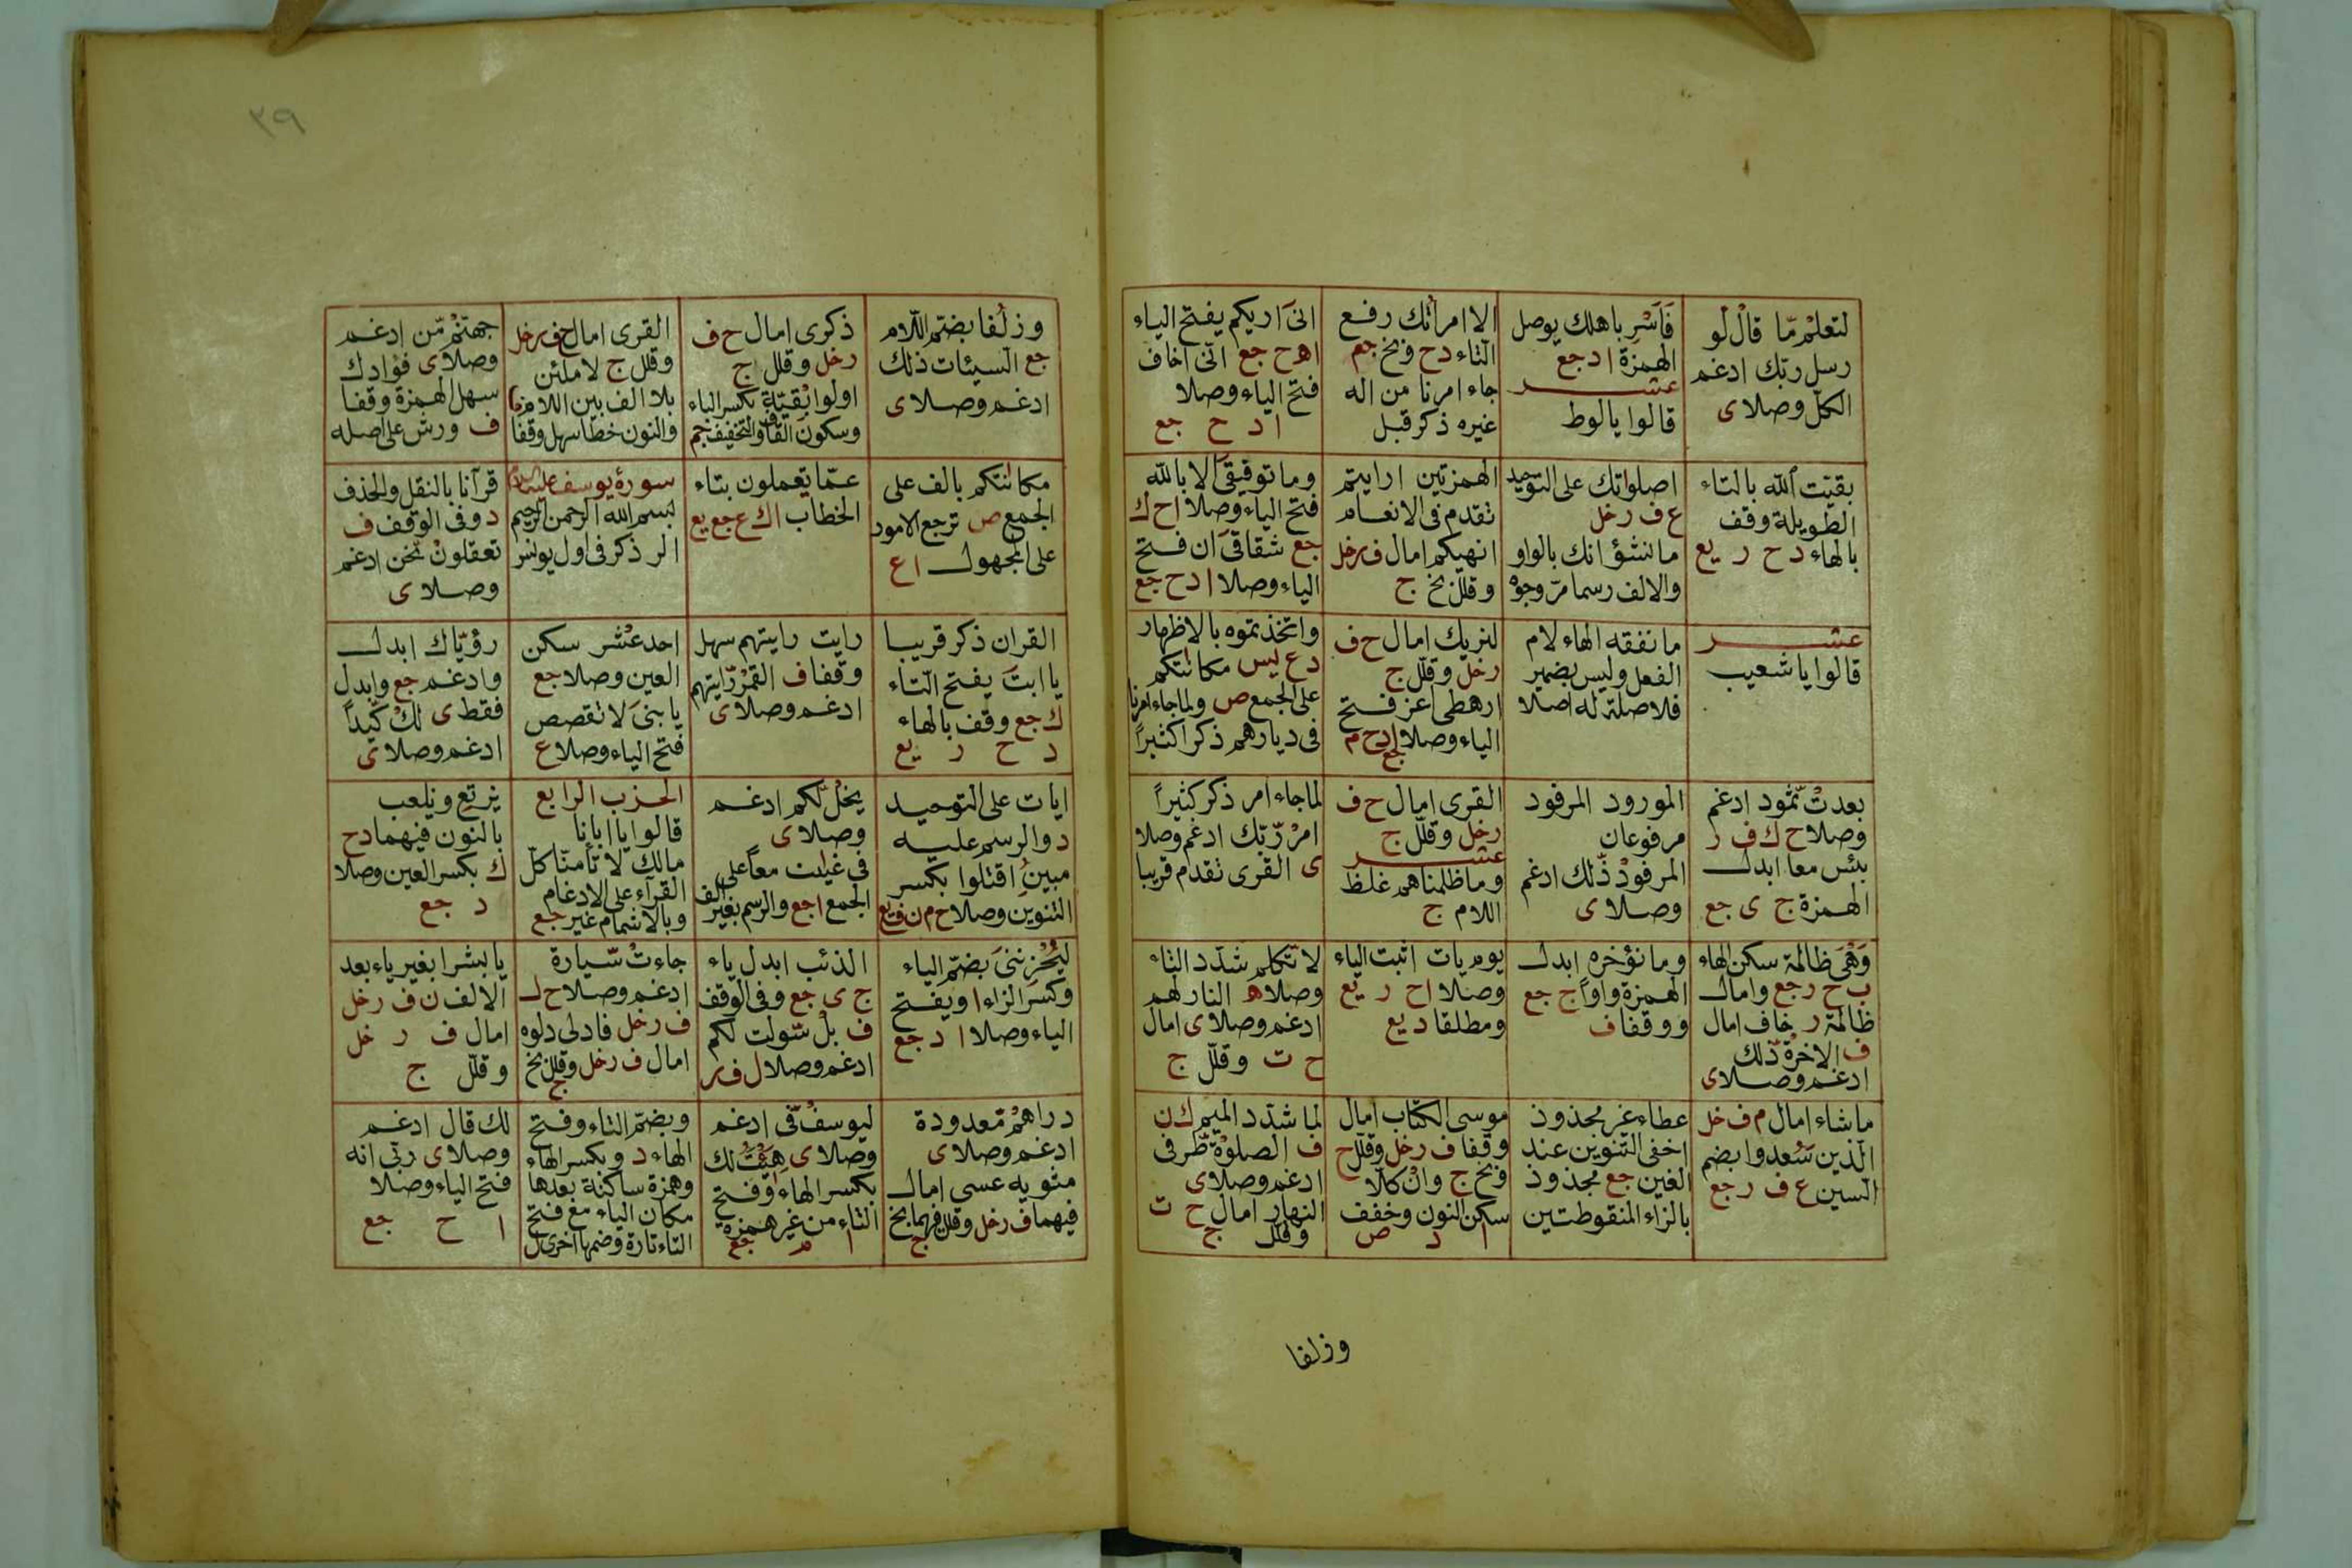 لتعلمْ مّا قالْ لو
رسل رّبك ادغم
الكلّ وصلا ى
فَاَسْرِ باهلك يوصل
الهمزة ا د جع
عشر
قالوا يا لوط
الا امرأتك رفع
التاء د ح وبخ جم
جاء امرنا من اله
غيره ذكر قبل
انىَ اريكم يفتح الياء
ا ه ح جع انّى اخاف
فتح الياء وصلا
ا د ح جع
بقيّت الله بالتاء
الطويلة وقف
بالهاء د ح ر يع
اصلواتك على التوحيد
ع ف ر خل
ما نشؤا انك بالواو
والالف رسما مرّ وجوه
الهمزتين ارايتم
تقدم فى الانعام
انهيكم امال ف ر خل
وقلل بخ ج
وما توفيقىَ الا بالله
فتح الياء وصلا ا ح ك
جع شقاقىَ ان فتح
الياء وصلا ا د ح جع
عشر
قالوا يا شعيب
ما نفقه الهاء لام
الفعل وليس بضمير
فلا صلة له اصلا
لنريك امال ح ف
ر خل وقلّل ج
ارهطى اعز فتح
الياء وصلا ا د ح م
جع
واتخذتموه بالاظهار
د ع ليس مكانتكم
على الجمع ص ولما جاء امرنا
فى ديارهم ذكرا كثيراً
بعدتْ ثّمود ادغم
وصلا ح ك ف ر
بئس معا ابدل
الهمزة ج ى جع
المورود المرفود
مرفوعان
المرفودْ ذّلك ادغم
وصلا ى
القرى امال ح ف
ر خل وقلّل ج
عشر
وما ظلمناهم غلظ
اللام ج
لما جاء امر ذكر كثيراً
امرْ رّبك ادغم وصلا
ى القرى تقدم قريبا
وَهْىَ ظالمة سكن الهاء
ب ح ر جع وامال
ظالمة ر خاف امال
ف الاخرةْ ذّلك
ادغم وصلا ى
وما نؤخره ابدل
الهمزة واواً ج جع
ووقفا ف
يوم يات اثبت الياء
وصلا ا ح ر يع
ومطلقا د يع
لا تكلم شدّد التاء
وصلا ه النار لهم
ادغم وصلا ى امال
ح ت وقلّل ج
ما شاء امال م ف خل
الّذين سُعدوا بضم
السين ع ف ر جع
عطاء غير مجذوذ
اخفى التنوين عند
الغين جع مجذوذ
بالزاء المنقوطتين
موسى الكتاب امال
وقفا ف ر خل وقلّل ح
وبخ ج وانْ كلّا
سكن النون وخفف
ا د ص
لما شدّد الميم ك ن
ف الصلوةْ طّرفى
ادغم وصلا ى
النهار امال ح ت
وقلل ج
وزلفا
٣٩
وزلُفا بضتم اللّام
جع السيئات ذلك
ادغم وصلا ى
ذكرى امال ح ف
ر خل وقلل ج
اولوا بقية بكسر الباء
وسكون القاف والتخفيف جم
القرى امال ح ف ر خل
وقلل ج لاملئن
بلا الف بين اللام
والنون خطا سهل وقفا
جهنمْ مّن ادغم
وصلا ى فؤادك
سهل الهمزة وقفا
ف ورش على اصله
مكانتكم بالف على
الجمع ص ترجع الامور
على المجهول ا ع
عمّا يعملون بتاء
الخطاب ا ك ع جع يع
سورة يوسف
بسم الله الرحمن الرحيم
الر ذكر فى اول يونس
قرآنا بالنقل والحذف
د وفى الوقف ف
تعقلونْ نّحن ادغم
وصلا ى
القران ذكر قريبا
يا ابتَ يفتح التاء
ك جع وقف بالهاء
د ح ر يع
رايت رايتهم سهل
وقفا ف القمرْ رّايتهم
ادغم وصلا ى
احد عشر سكن
العين وصلا جع
يا بنىَ لا تقصص
فتح الياء وصلا ع
رؤيّاك ابدل
وادغم جع وابدل
فقط ى لكْ كّيداً
ادغم وصلا ى
ايات على التوحيد
د والرسم عليه
مبينٍ اقتلوا بكسر
التنوين وصلا ح م ن ف يع
يخلْ لّكم ادغم
وصلا ى
فى غيابت معاً على
الجمع ا جع والرسم بغير الف
الحزب الرابع
قالوا يا ابانا
مالك لا تأمنّا كلّ
القرآء على الادغام
وبالاشمام غير جع
نرتع ونلعب
بالنون فيهما د ح
ك بكسر العين وصلا
د جع
ليُحْزِننىَ بضتم الياء
وكسر الزاء ا ويفتح
الياء وصلا ا د جع
الذئب ابدل ياء
ج ى جع وفى الوقف
ف بلْ سّولت لكم
ادغم وصلا ل ف ر
جاءتْ سّيارة
ادغم وصلا ح ل
ف ر خل فادلى دلوه
امال ف ر خل وقلل بخ
ج
يا بشرا بغير ياء بعد
الالف ن ف ر خل
امال ف ر خل
وقلّل ج
دراهمْ مّعدودة
ادغم وصلا ى
مثويه عسى امال
فيهما ف ر خل وقلل فيهما بخ
ج
ليوسفْ فّى ادغم
وصلا ى هِيْتَ لك
بكسر الهاء وفتح
التاء من غير همزه
ا م جع
وبضمّ التاء وفتح
الهاء د وبكسر الهاء
وهمزة ساكنة بعدها
مكان الياء مع فتح
التاء تارة وضمها اخرى ل
لك قال ادغم
وصلا ى ربّى انه
فتح الياء وصلا
ا ح جع